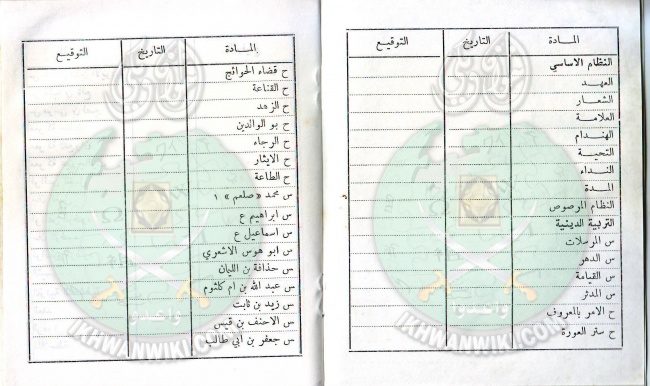 المادة التاريخ التوقيع
النظام الاساسي
العهد
الشعار
العلامة
الهندام
التحية
النداء
المدة
النظام المرصوص
التربية الدينية
س المرسلات
س الدهر
س القيامة
س المدثر
ح الامر بالمعروف
ح ستر العورة
المادة التاريخ التوقيع
ح قضاء الحوائج
ح القناعة
ح الزهد
ح بو الوالدين
ح الرجاء
ح الايثار
ح الطاعة
س محمد « صلعم » ١
س ابراهيم ع
س اسماعيل ع
س ابو هوس الاشعري
س حذافة بن اللبان
س عبد الله بن ام كلثوم
س زيد بن ثابت
س الاحنف بن قيس
س جعفر بن ابي طالب
وأعدوا
IKHWANWIKI.COM
وأعدوا
IKHWANWIKI.COM